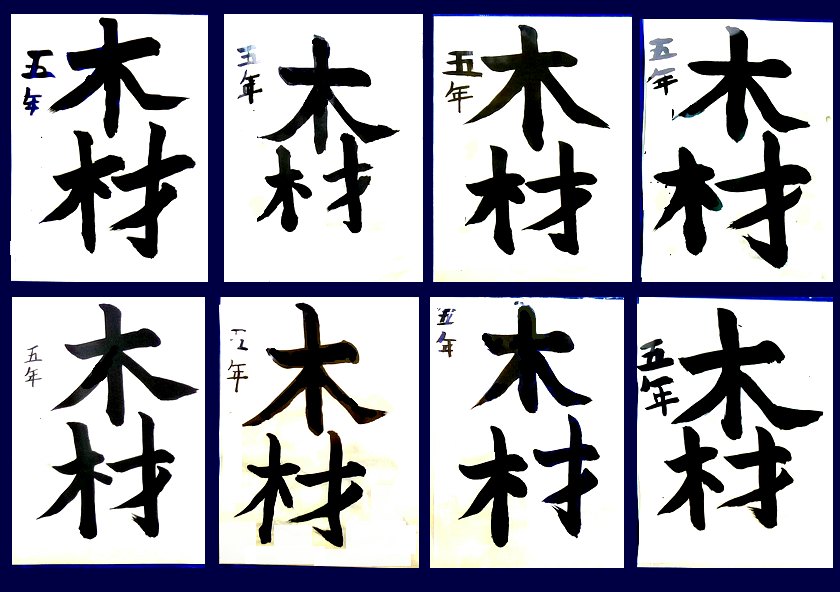 木材
五年
木材
五年
木材
五年
木材
五年
木材
五年
木材
年
木材
五年
木材
五年